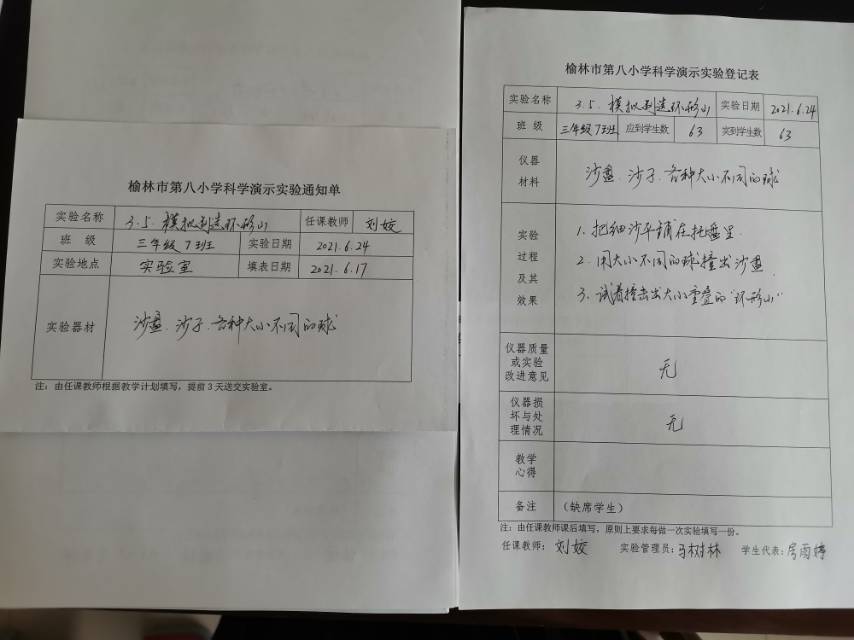 榆林市第八小学科学演示实验通知单
实验名称 3.5.模拟制造环形山 任课教师 刘姣
班 级 三年级7班 实验日期 2021.6.24
实验地点 实验室 填表日期 2021.6.17
实验器材 沙盘.沙子.各种大小不同的球
注:由任课教师根据教学计划填写,提前3天送交实验室。
榆林市第八小学科学演示实验登记表
实验名称 3.5.模拟制造环形山 实验日期 2021.6.24
班 级 三年级7班 应到学生数 63 实到学生数 63
仪器
材料
沙盘.沙子.各种大小不同的球
实验
过程
及其
效果
1.把细沙平铺在托盘里.
2.用大小不同的球撞出沙盘
3.试着撞击出大小重叠的“环形山”
仪器质量
或实验
改进意见
无
仪器损
坏与处
理情况
无
教学
心得
备注 (缺席学生)
注:由任课教师课后填写,原则上要求每做一次实验填写一份。
任课教师: 刘姣 实验管理员: 马树林 学生代表: 雨婷